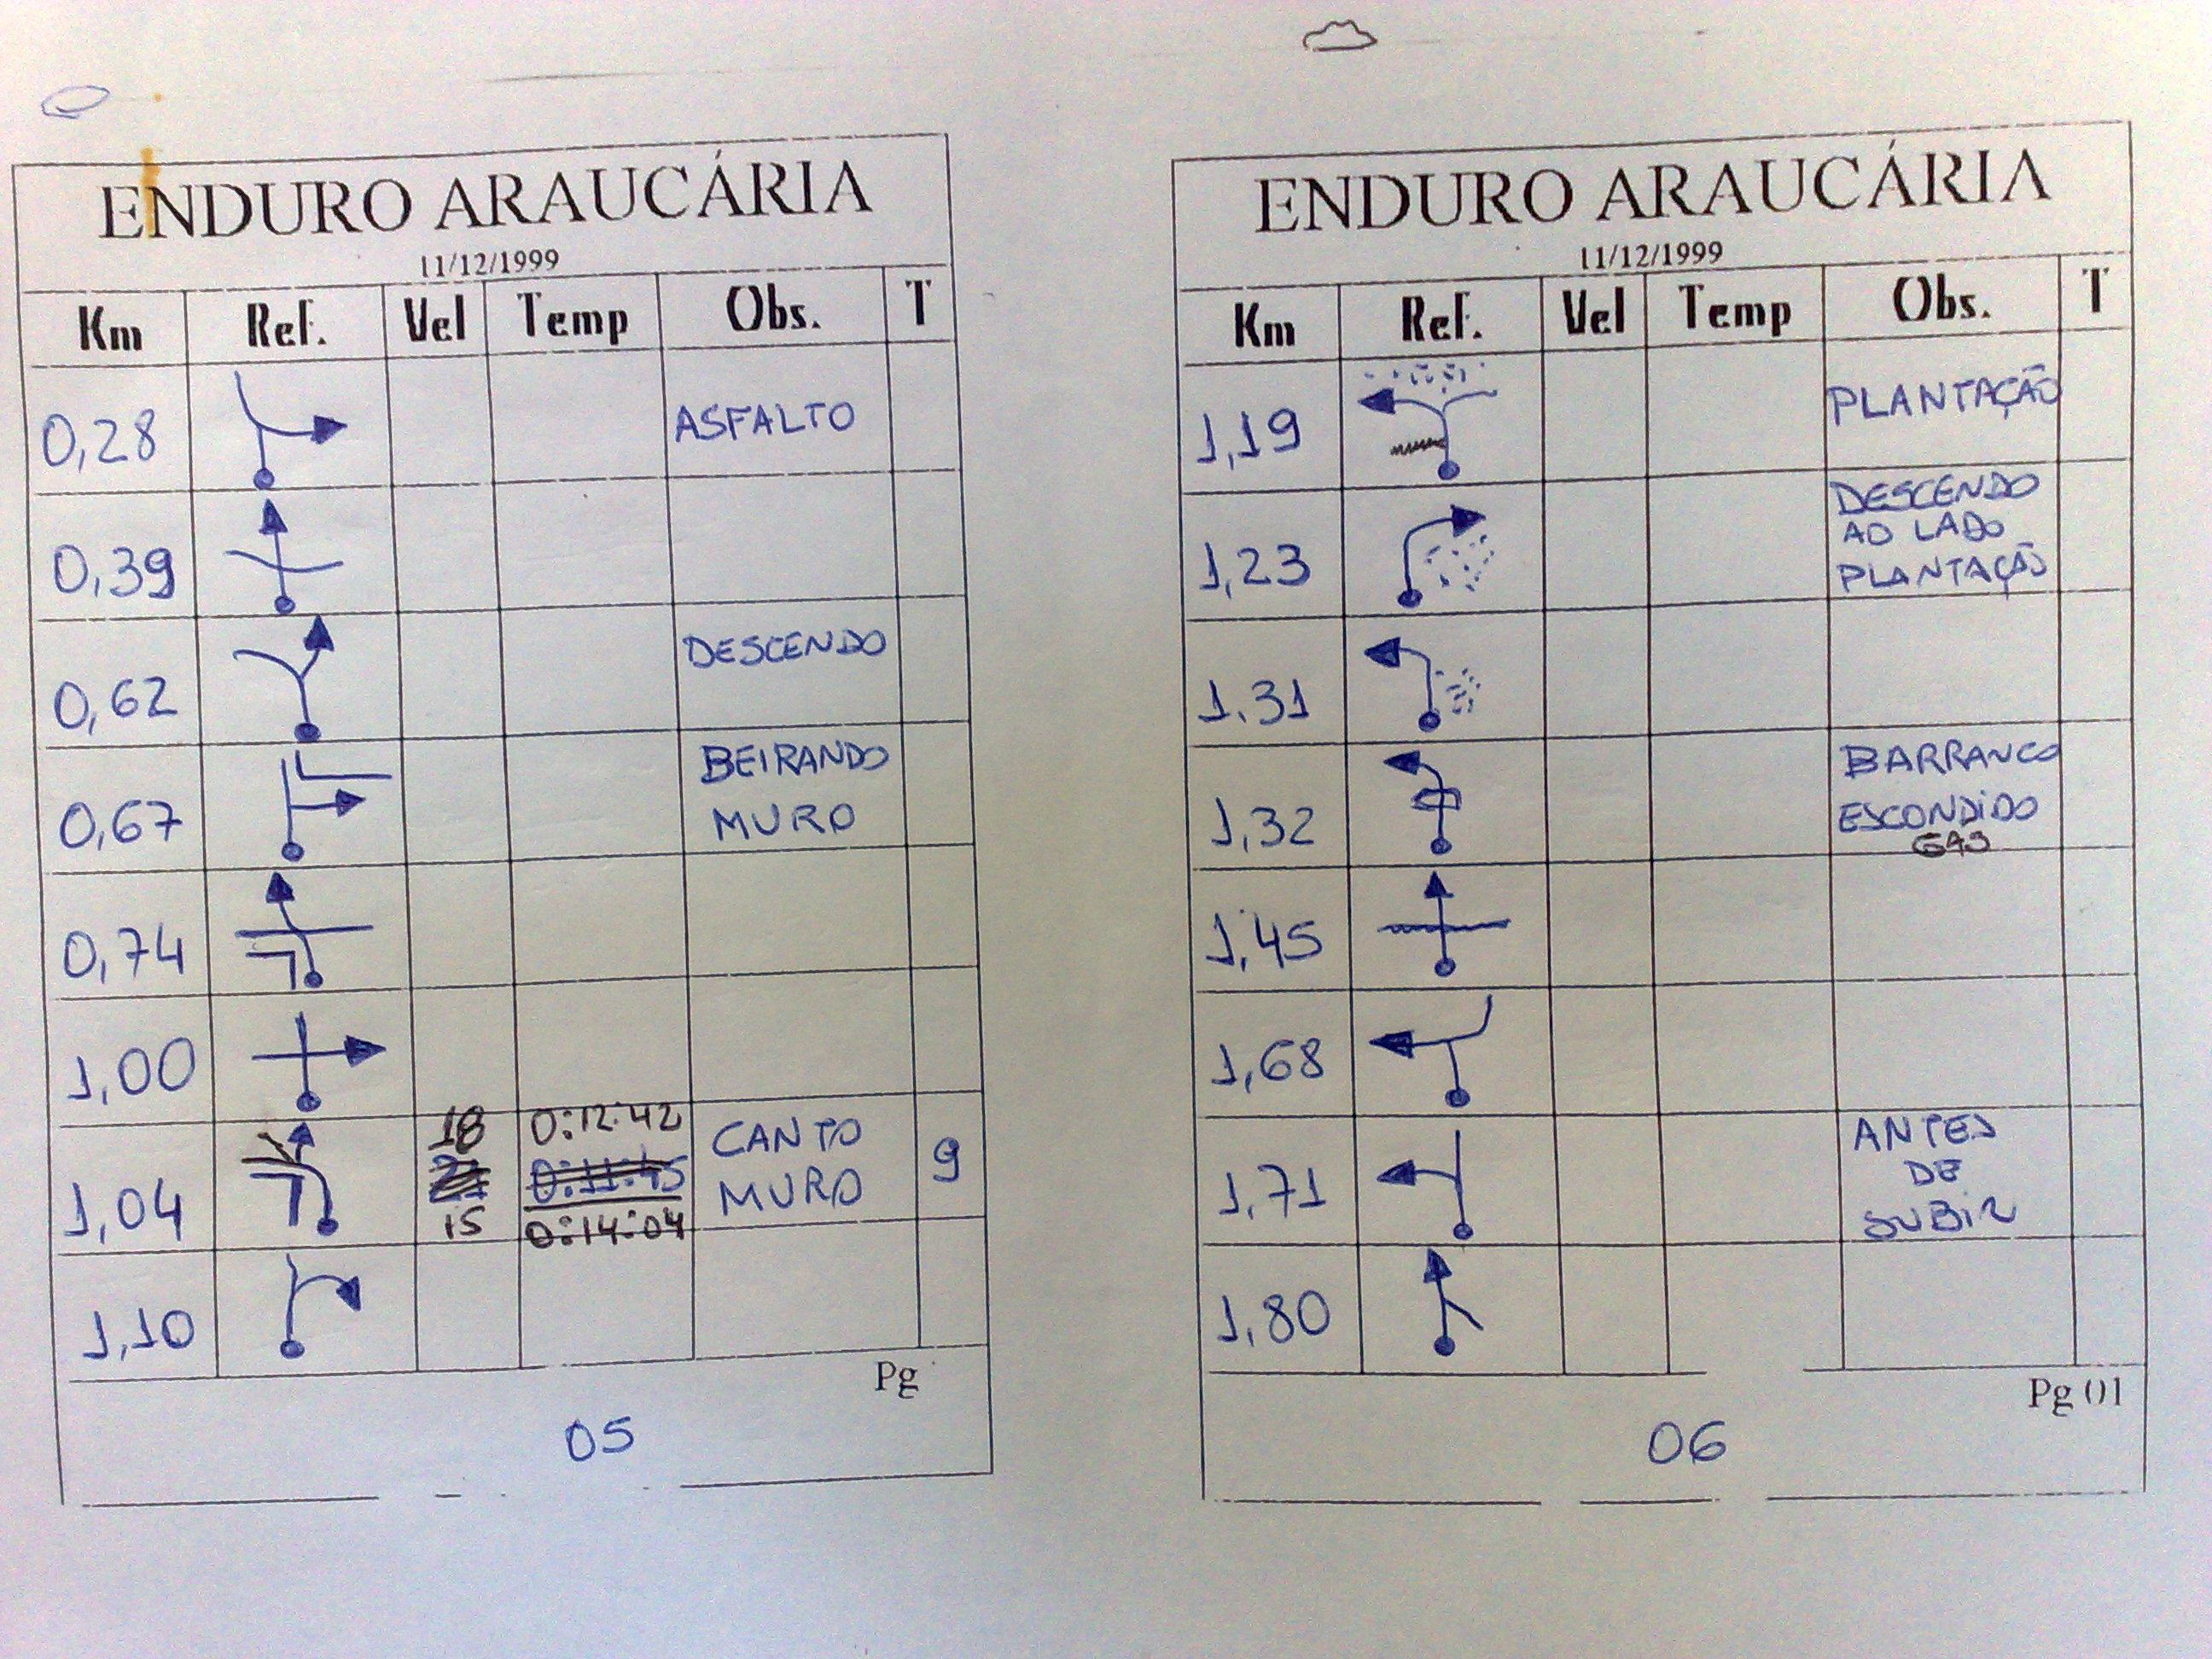 ENDURO ARAUCÁRIA
11/12/1999
Km Ref. Vel Temp Obs. T
0,28 ASFALTO
0,39
0,62 DESCENDO
0,67 BEIRANDO
MURO
0,74
1,00
1,04 18 0:12:42 CANTO 9
0:11:45 MURO
15 0:14:04
1,10
Pg
05
ENDURO ARAUCÁRIA
11/12/1999
Km Ref. Vel Temp Obs. T
1,19 PLANTAÇÃO
1,23 DESCENDO
AO LADO
PLANTAÇÃO
1.31
1,32 BARRANCO
ESCONDIDO
GAS
1,45
1,68
1,71 ANTES
DE
SUBIR
1,80
Pg 01
06